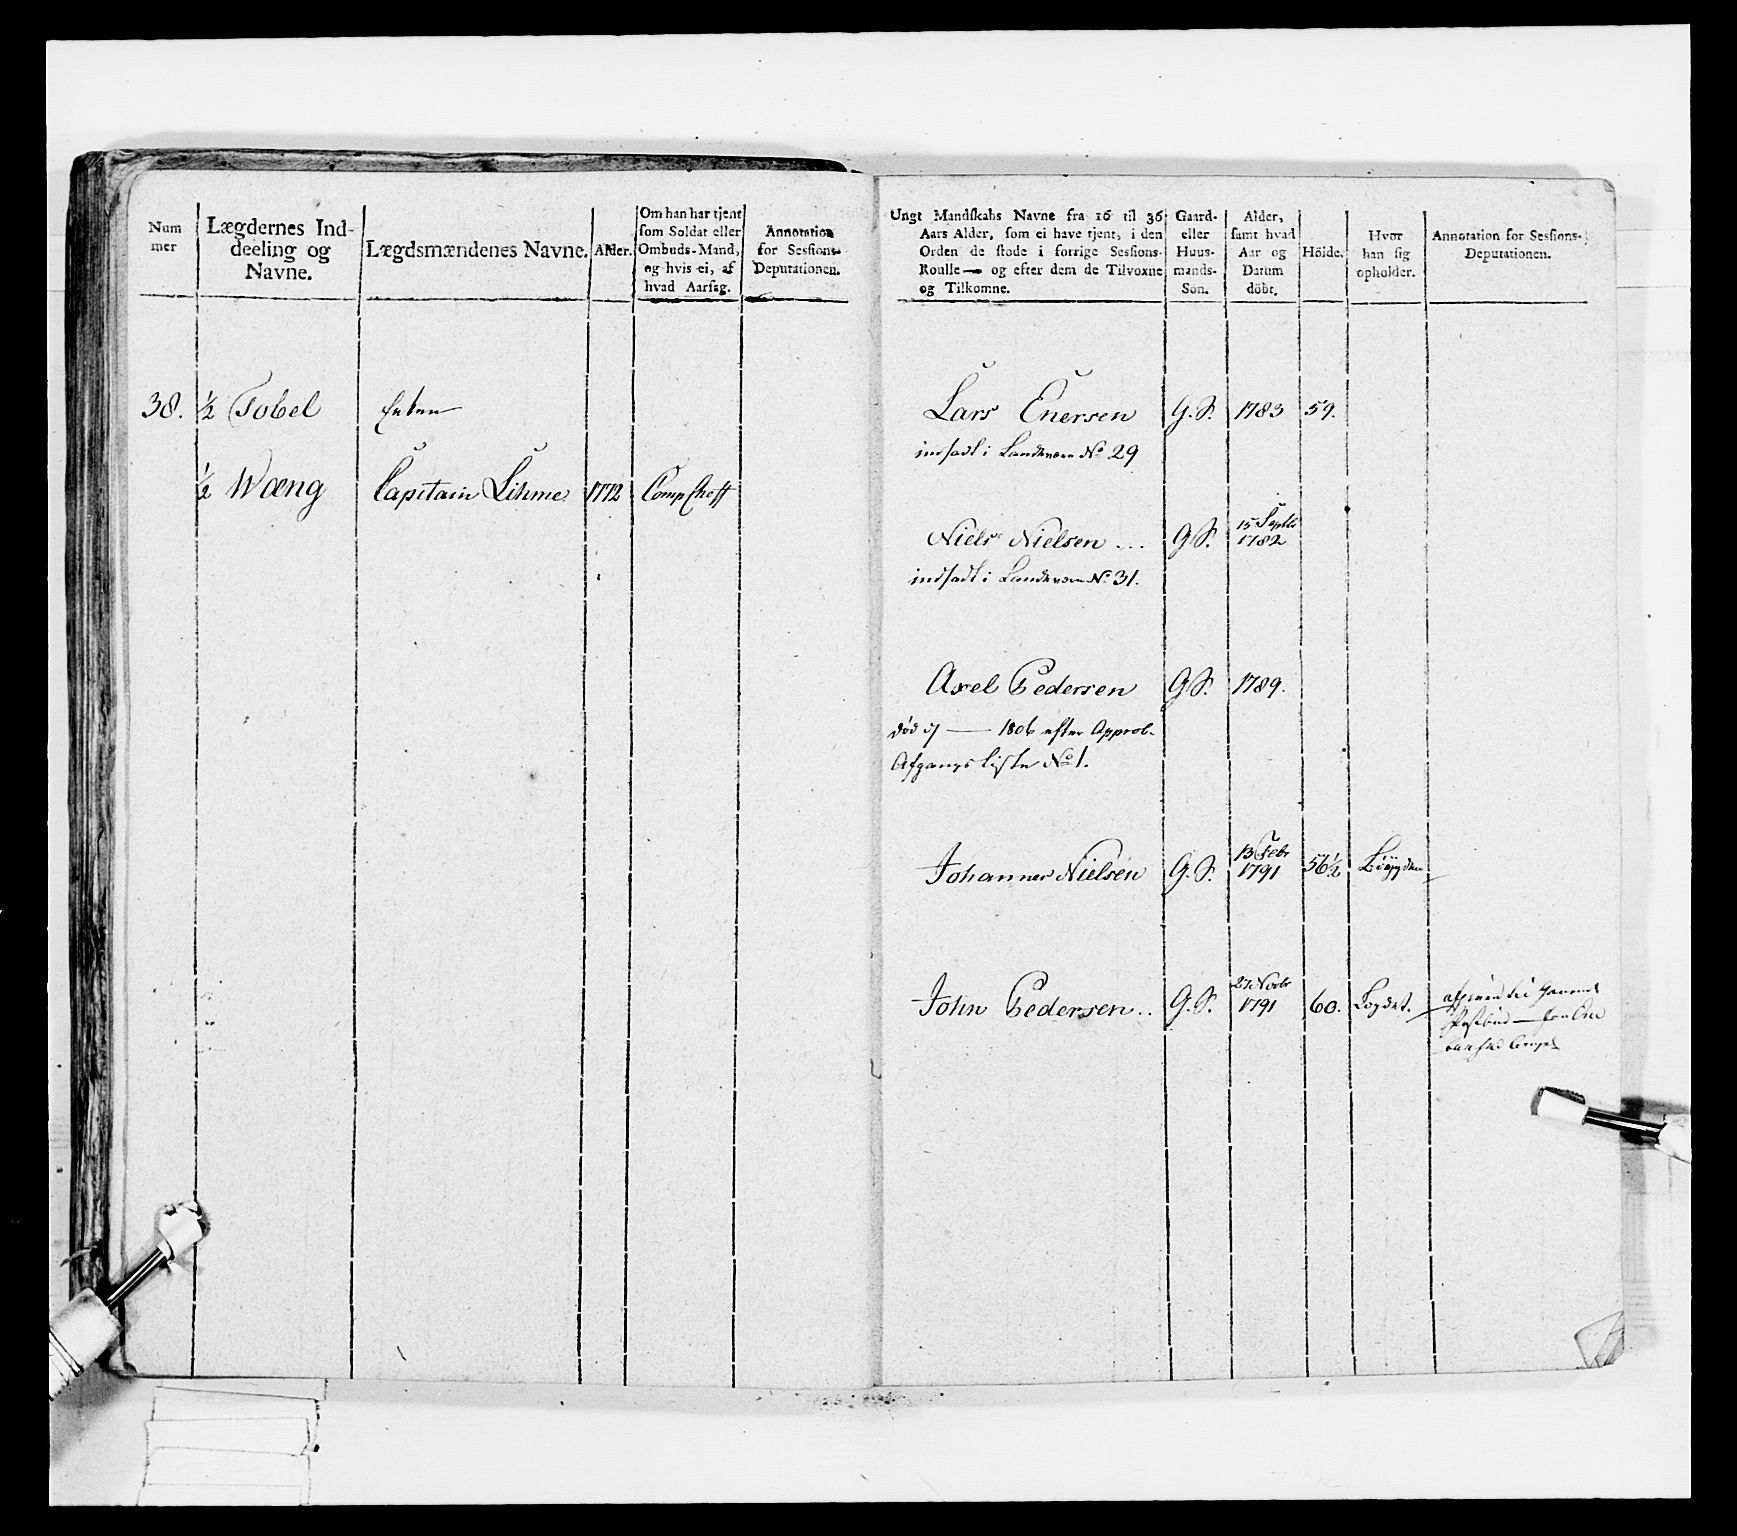 Num
mer
Lægdernes Ind-
deeling og
Navne.
Lægdsmændenes Navne.
Alder.
Om han har tjent
som Soldat eller
Ombuds-Mand,
og hvis ei, af
hvad Aarsag.
Annotation
for Sessions-
Deputationen.
38. ½ Tobel Enken
½ Wæng Capitain Lihme 1772 Comp Cheff
Ungt Mandskabs Navne fra 16 til 36
Aars Alder, som ei have tjent, i den
Orden de stode i forrige Sessions-
Roulle — og efter dem de Tilvoxne
og Tilkomne.
Gaard-
eller
Huus-
mands-
Søn.
Alder,
samt hvad
Aar og
Datum
döbt.
Höide.
Hvor
han sig
opholder.
Annotation for Sessions-
Deputationen.
Lars Enersen G. S. 1783 59.
indsadt i Landeværn No 29
Niels Nielsen ... G S. 15 Septbr 1782
indsadt i Landeværn No 31.
Axel Pedersen G S. 1789.
død d — 1806 efter Approb.
Afgangs Liste No 1.
Johannes Nielsen G. S. 13 Febr 1791 56½ Bøygden
John Pedersen .. G. S. 27 Novbr 1791 60. Logdet.